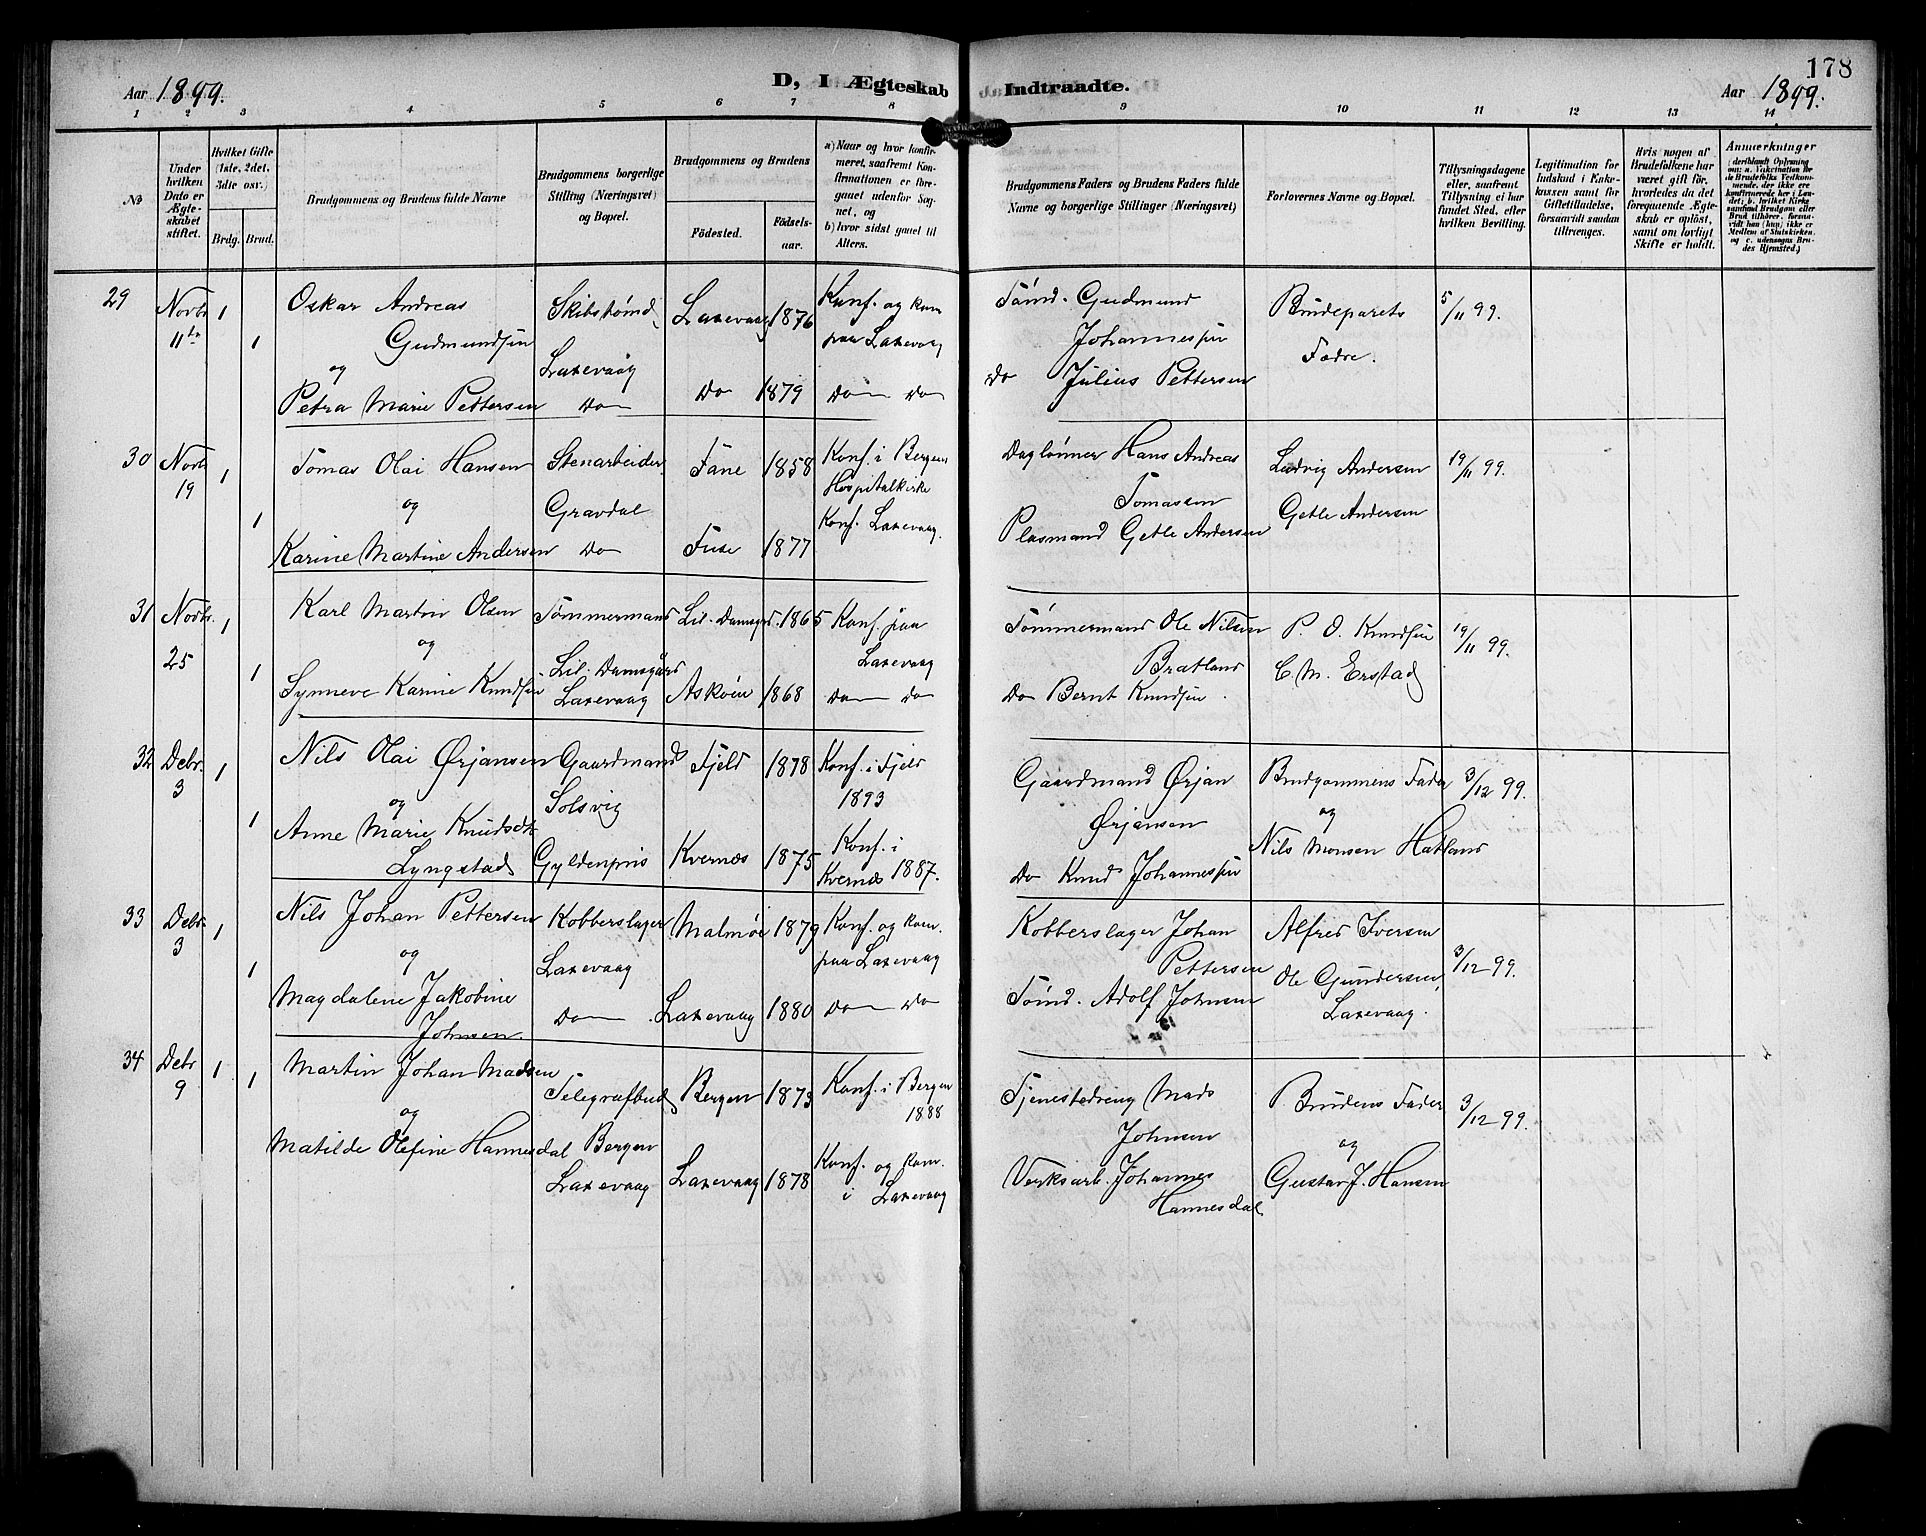 178
Aar 1899.
D, I Ægteskab Indtraadte.
Aar 1899.
1 2 3 4 5 6 7 8 9 10 11 12 13 14
No
Under hvilken Dato er Ægteskabet stiftet.
Hvilket Gifte (1ste, 2det, 3die osv.)
Brdg. Brud.
Brudgommens og Brudens fulde Navne
Brudgommens borgerlige Stilling (Næringsvei) og Bopæl.
Brudgommens og Brudens
Fødested.
Fødselsaar.
a) Naar og hvor konfirmeret, saafremt Konfirmationen er foregaaet udenfor Sognet, og
b) hvor sidst gaaet til Alters.
Brudgommens Faders og Brudens Faders fulde Navne og borgerlige Stillinger (Næringsvei)
Forlovernes Navne og Bopæl.
Tillysningsdagene eller, saafremt Tillysning ei har fundet Sted, efter hvilken Bevilling.
Legitimation for Indskud i Enkekassen samt for Giftetilladelse, forsaavidt saadan tiltrænges.
Hvis nogen af Brudefolkene har været gift før, hvorledes da det foregaaende Ægteskab er opløst, samt om lovligt Skifte er holdt.
Anmerkninger
29 Novbr 11te 1 1
Oskar Andreas
Gudmundsen
og
Petra Marie Pettersen
Skibstømd.
Laxevaag
Do
Laxevaag 1876
Do 1879
Konf. og kom
paa Laxevaag
Do Do
Tømd. Gudmund
Johannessen
Do Julius Pettersen
Brudeparets
Fædre.
5/11 99.
30 Novbr 19 1 1
Tomas Olai Hansen
og
Karine Martine Andersen
Stenarbeider
Gravdal
Do
Fane 1858
Fuse 1877
Konf. i Bergens
Hospitalkirke
Konf. Laxevaag.
Daglønner Hans Andreas
Tomassen
Plasmand Getle Andersen
Ludvig Andersen
Getle Andersen
19/11 99.
31 Novbr. 25 1 1
Karl Martin Olsen
og
Synneve Karine Knudsen
Tømmermand
Lil. Damsgård
Laxevaag
Lil. Damsgrd. 1865
Askøen 1868
Konf. paa
Laxevaag
Do Do
Tømmermand Ole Nilsen
Bratland
Do Bernt Knudsen.
P. O. Knudsen
C. M. Erstad
19/11 99.
32 Debr. 3 1 1
Nils Olai Ørjansen
og
Anne Marie Knudsdtr
Lyngstad
Gaardmand
Solsvig
Gyldenpris
Fjeld 1878
Kvernes 1875
Konf. i Fjeld
1893
Konf. i
Kvernes 1887.
Gaardmand Ørjan
Ørjansen
Do Knud Johannessen
Brudgommens Fader
og
Nils Monsen Hatland
3/12 99.
33 Debr. 3 1 1
Nils Johan Pettersen
og
Magdalene Jakobine
Johnsen
Kobberslager
Laxevaag
Do
Malmøe 1879
Laxevaag 1880
Konf. og kom.
paa Laxevaag
Do Do
Kobberslager Johan
Pettersen
Tømd. Adolf Johnsen
Alfred Iversen
Ole Gundersen,
Laxevaag.
3/12 99.
34 Debr 9 1 1
Martin Johan Madsen
og
Matilde Olefine Hannesdal
Telegrafbud
Bergen
Laxevaag
Bergen 1873
Laxevaag 1878
Konf. i Bergen
1888
Konf. og kom.
i Laxevaag
Tjenestedreng Mads
Johnsen
Verksarb. Johannes
Hannesdal
Brudens Fader
og
Gustav J. Hansen
3/12 99.